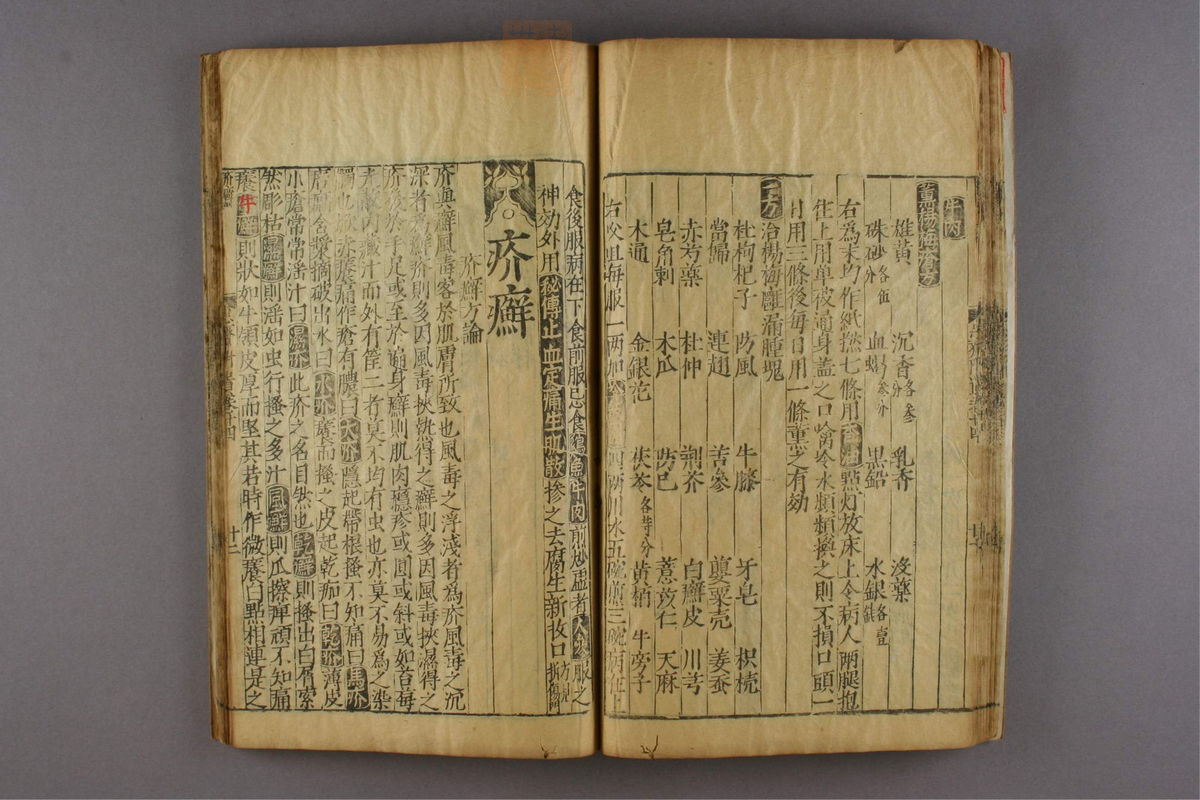 牛肉
薰楊梅瘡方
雄黃 沉香各參分 乳香 沒藥
硃砂各伍分 血蝎參分 黑鉛 水銀各壹錢
右為末均作紙撚七條用香油點灯放床上令病人兩腿抱
住上用单被通身盖之口噙冷水頻頻換之則不損口頭一
日用三條後每日用一條薰之有効
一方治楊梅癰漏腫塊
杜枸杞子 防風 牛膝 牙皂 枳梡
當歸 連翹 苦參 甖粟壳 姜蚕
赤芍藥 杜仲 荊芥 白癬皮 川芎
皂角刺 木瓜 防巳 薏苡仁 天麻
木通 金銀花 茯苓各等分 黄栢 牛旁子
右㕮咀每服一兩加 四兩川水五碗煎三碗病在上
食後服病在下食前服忌食鷄魚牛肉煎炒虛者人參服之
神効外用秘傳止血定痛生肌散摻之去腐生新收口方見折傷門
疥癬
疥癬方論
疥與癬風毒客於肌膚所致也風毒之浮淺者為疥風毒之沉
深者為癬疥則多因風毒挾熱得之癬則多因風毒挾濕得之
疥發於手足或至於遍身癬則肌肉癮疹或圓或斜或如苔莓
走散内藏汁而外有筐二者莫不均有虫也亦莫不易為之染
觸也夫赤癢痛作瘡有膿曰大疥隱起帶根搔不知痛曰馬疥
㾦瘰含漿摘破出水曰水疥癢而搔之皮起乾痂曰乾疥薄皮
小瘡常常滛汁曰濕疥此疥之名目然也乾癬則搔出白屑索
然彫枯濕癬則滛如虫行搔之多汁風癬則瓜擦痺頑不知痛
癢牛癬則狀如牛領皮厚而堅其若時作微癢白點相連是之
疥癬
十二